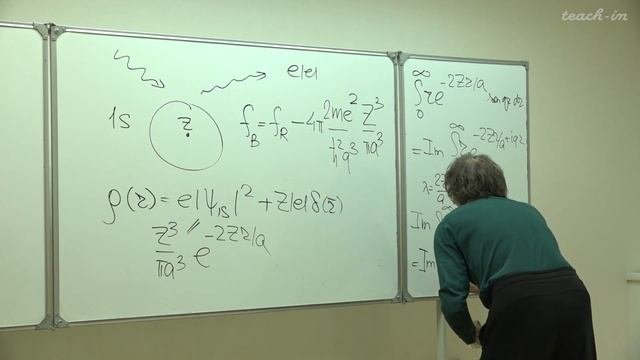 teach-in
e|e|
1S
Z
f_B = f_R - 4π 2me^2/ħ^2q^3 Z^3/πa^3
ρ(r) = e|ψ_1S|^2 + Z|e|δ(r)
Z^3/πa^3 e^-2Zr/a
∫_0^∞ r e^-2Zr/a sin qr dr
= Im ∫ r e^-2Zr/a+iqr
λ = 2Z/a
Im ∫
= Im